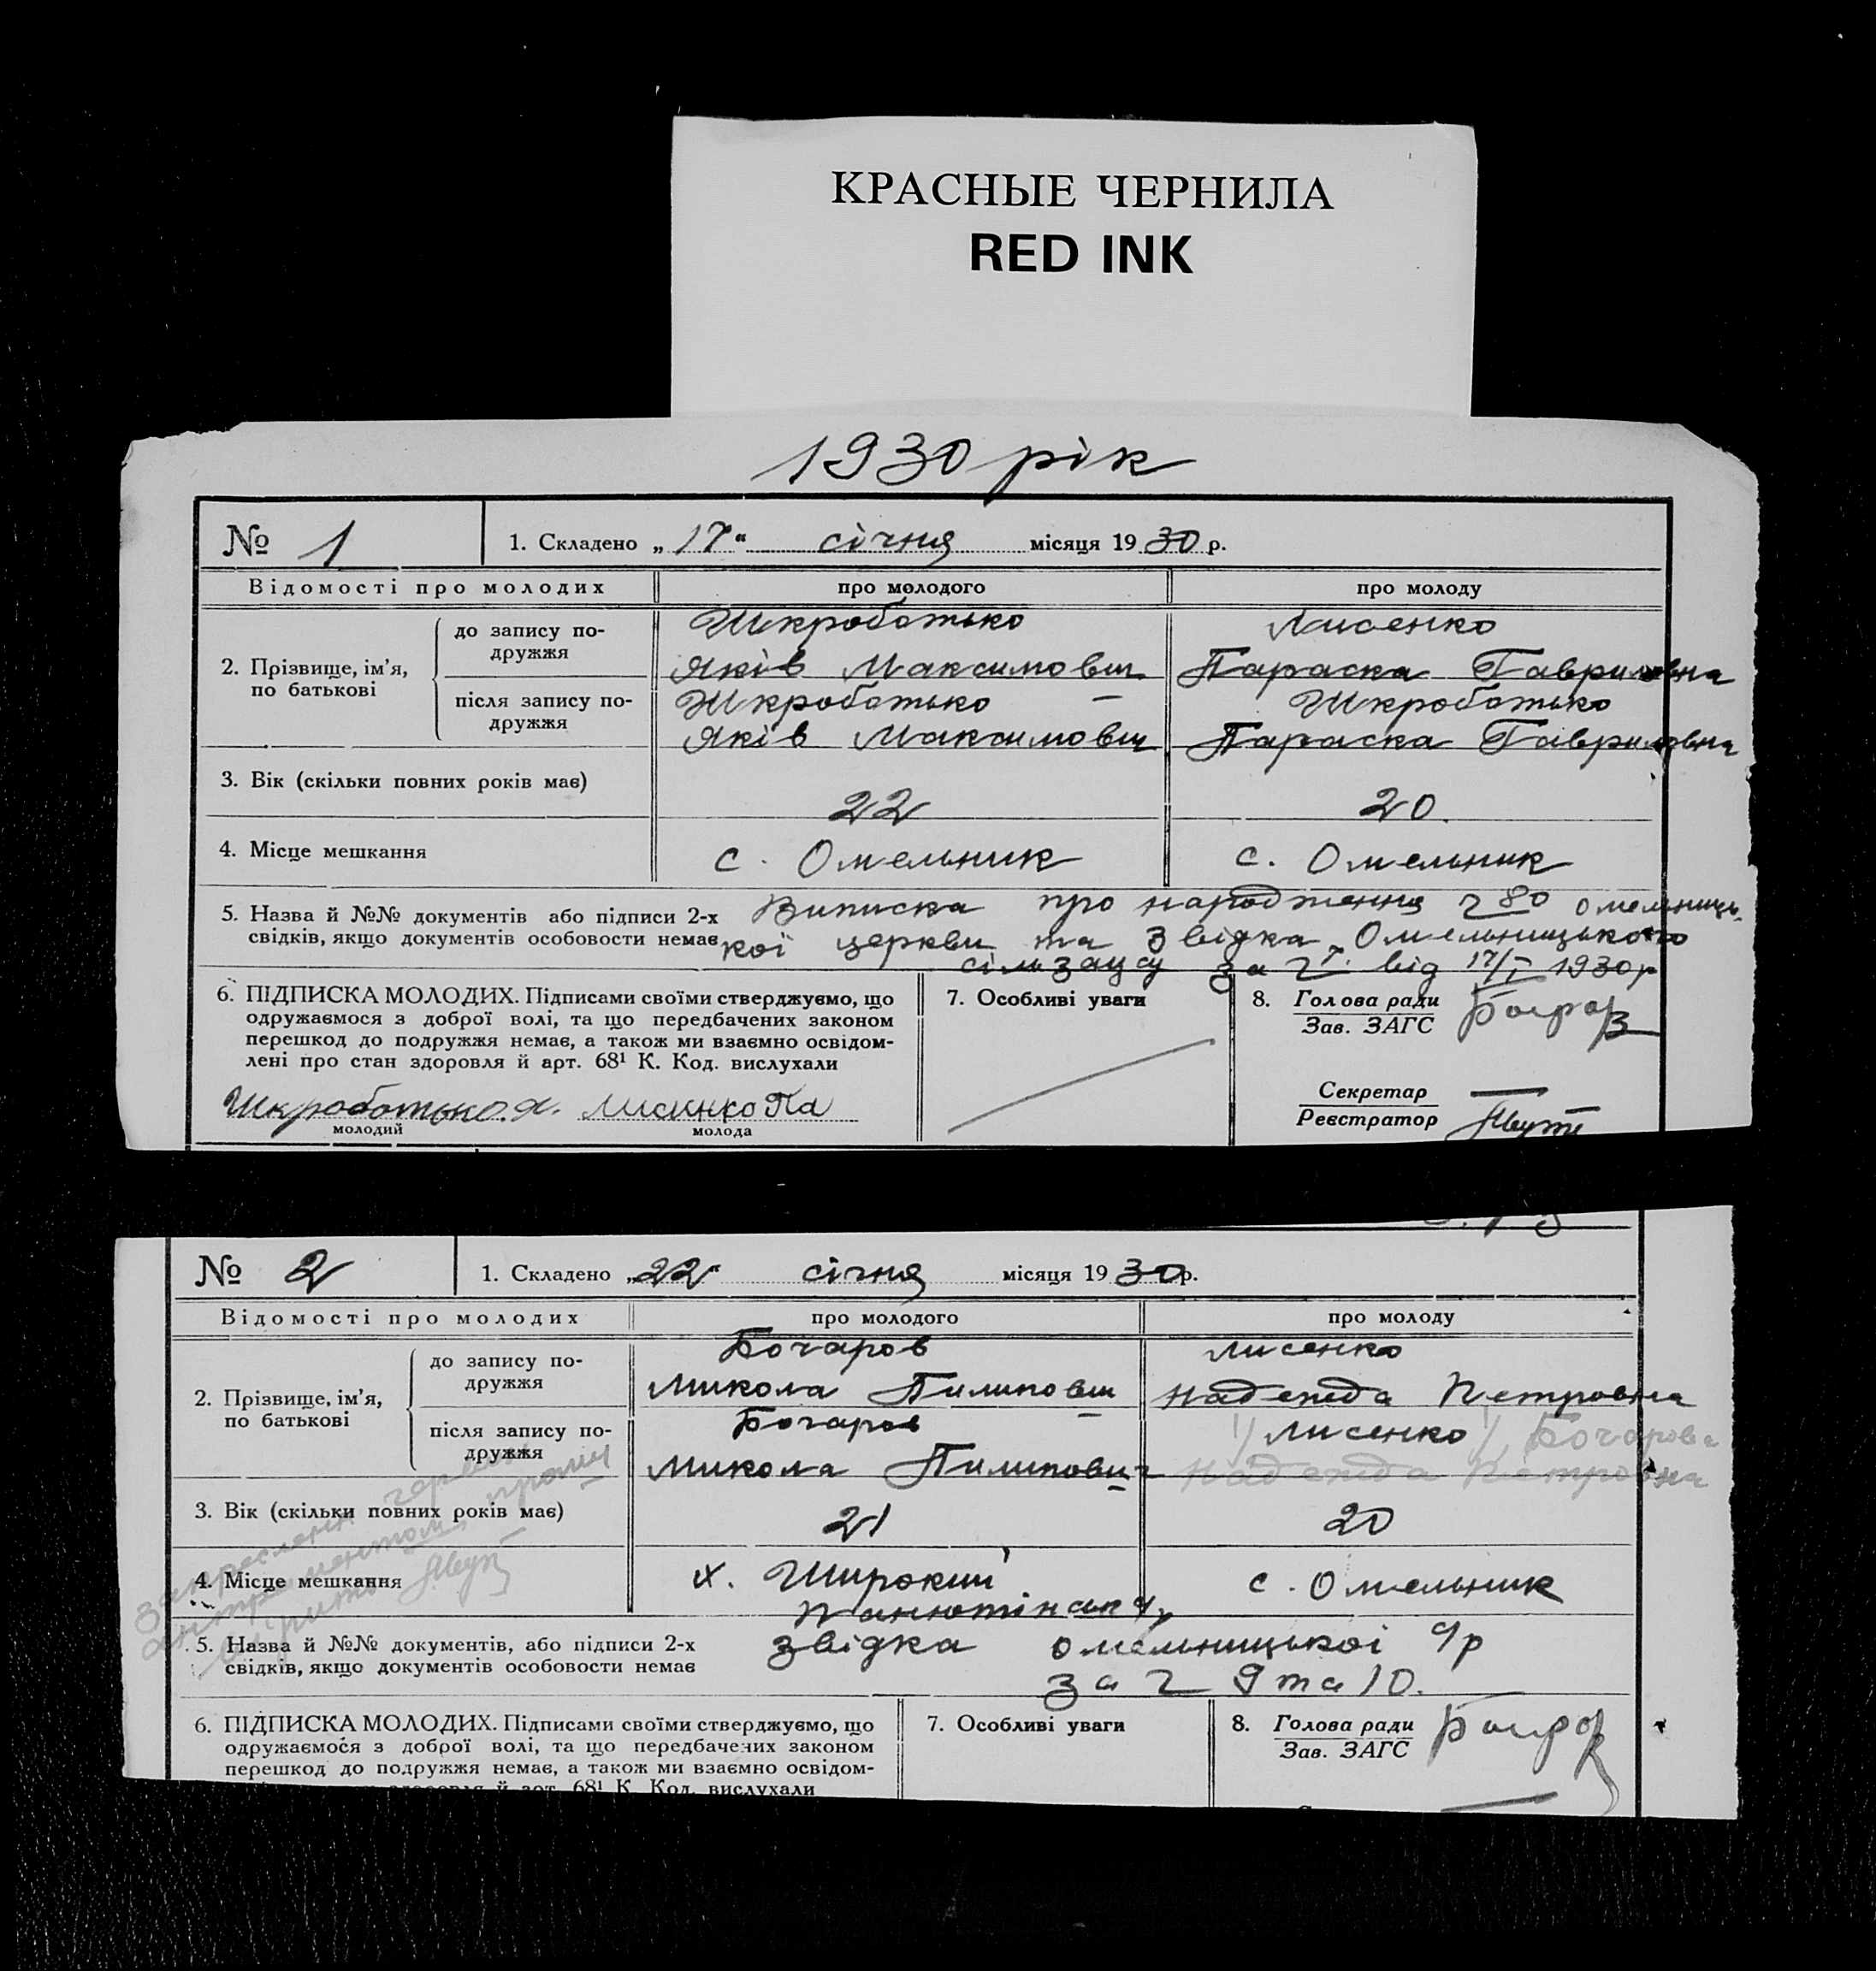 КРАСНЫЕ ЧЕРНИЛА
RED INK
1930 рік
№ 1
1. Складено „17“ січня місяця 1930 р.
Відомості про молодих про молодого про молоду
2. Прізвище, ім'я, по батькові
до запису подружжя
Шкроботько Лисенко
Яків Максимович Параска Гавриловна
після запису подружжя
Шкроботько Шкроботько
Яків Максимович Параска Гавриловна
3. Вік (скільки повних років має) 22 20.
4. Місце мешкання с. Омельник с. Омельник
5. Назва й №№ документів або підписи 2-х Виписка про народження ч 80 омельниць-
свідків, якщо документів особовости немає кої церкви та звідка Омельницького
сільзагсу за ч 1. від 17/I 1930р
6. ПІДПИСКА МОЛОДИХ. Підписами своїми стверджуємо, що
одружаємося з доброї волі, та що передбачених законом
перешкод до подружжя немає, а також ми взаємно освідом-
лені про стан здоровля й арт. 68¹ К. Код. вислухали
Шкроботько.Я. Лисинко Па
молодий молода
7. Особливі уваги
8. Голова ради
Зав. ЗАГС
Секретар
Реєстратор
№ 2
1. Складено „22“ січня місяця 1930р.
Відомості про молодих про молодого про молоду
2. Прізвище, ім'я, по батькові
до запису подружжя
Бочаров Лисенко
Микола Пилипович Надежда Петровна
після запису подружжя
Бочаров Лисенко Бочарова
Микола Пилипович Надежда Петровна
3. Вік (скільки повних років має) 21 20
4. Місце мешкання х. Широкий с. Омельник
закреслення червон
антраментом
вірити
5. Назва й №№ документів, або підписи 2-х звідка омельницької с/р
свідків, якщо документів особовости немає за ч 9 та 10.
6. ПІДПИСКА МОЛОДИХ. Підписами своїми стверджуємо, що
одружаємося з доброї волі, та що передбачених законом
перешкод до подружжя немає, а також ми взаємно освідом-
й арт. 68¹ К. Код. вислухали
7. Особливі уваги
8. Голова ради
Зав. ЗАГС